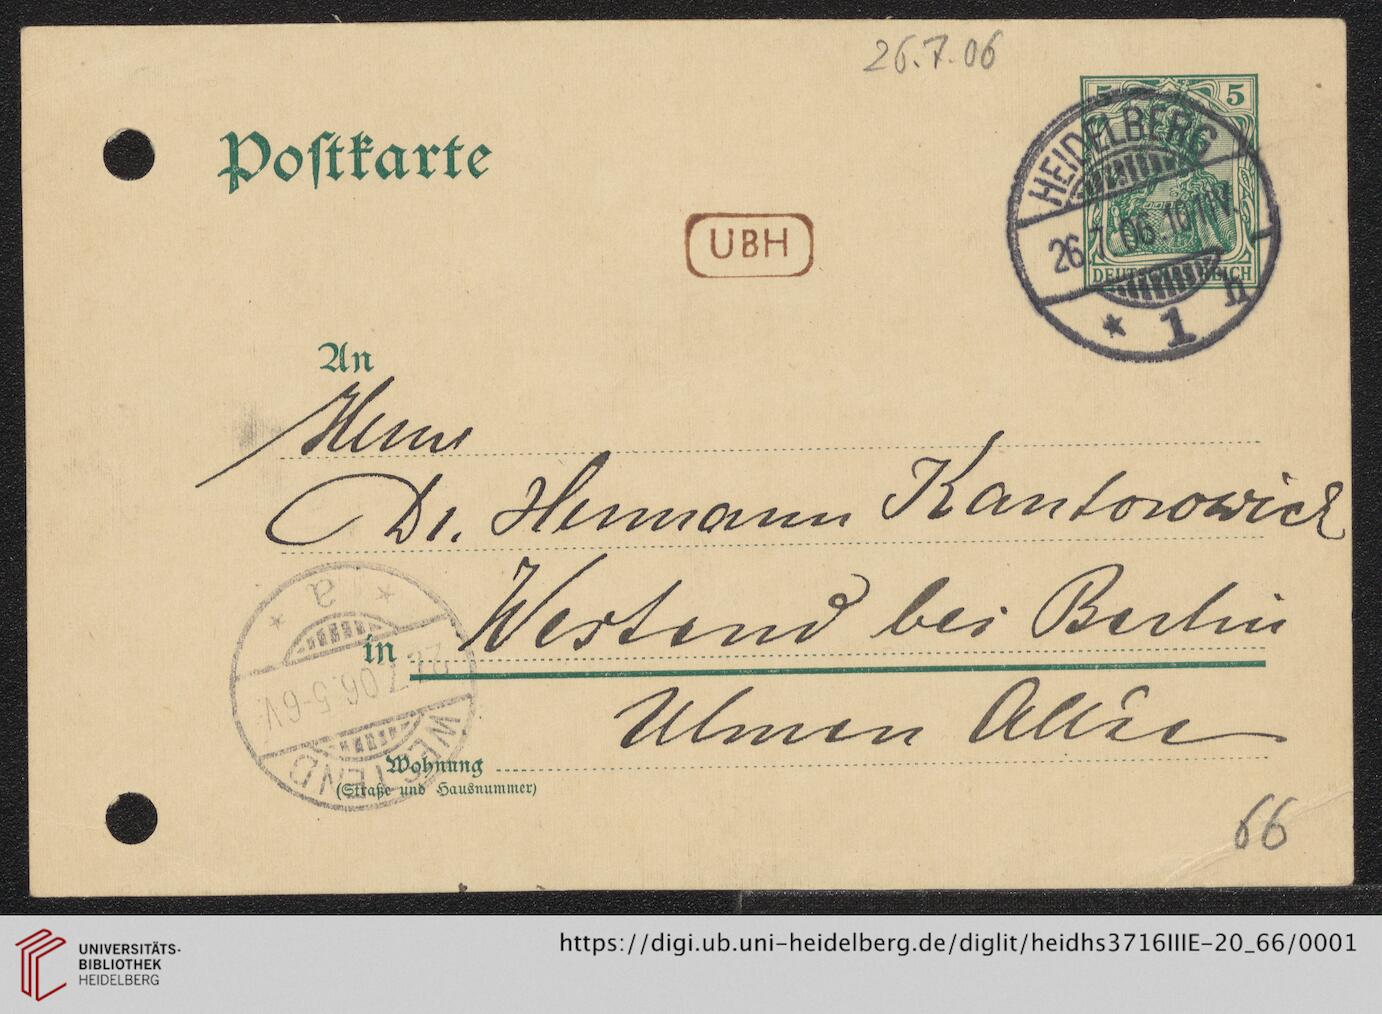 26.7.06
Postkarte
5 5
HEIDELBERG
26.7.06.10-11V.
* 1 n
DEUTSCHES REICH
UBH
An
Herrn
Dr. Hermann Kantorowicz
Westend bei Berlin
in
Ulmen Allée
* a *
7.06.5-6V.
WESTEND
Wohnung
(Straße und Hausnummer)
66
UNIVERSITÄTS-
BIBLIOTHEK
HEIDELBERG
https://digi.ub.uni-heidelberg.de/diglit/heidhs3716IIIE-20_66/0001